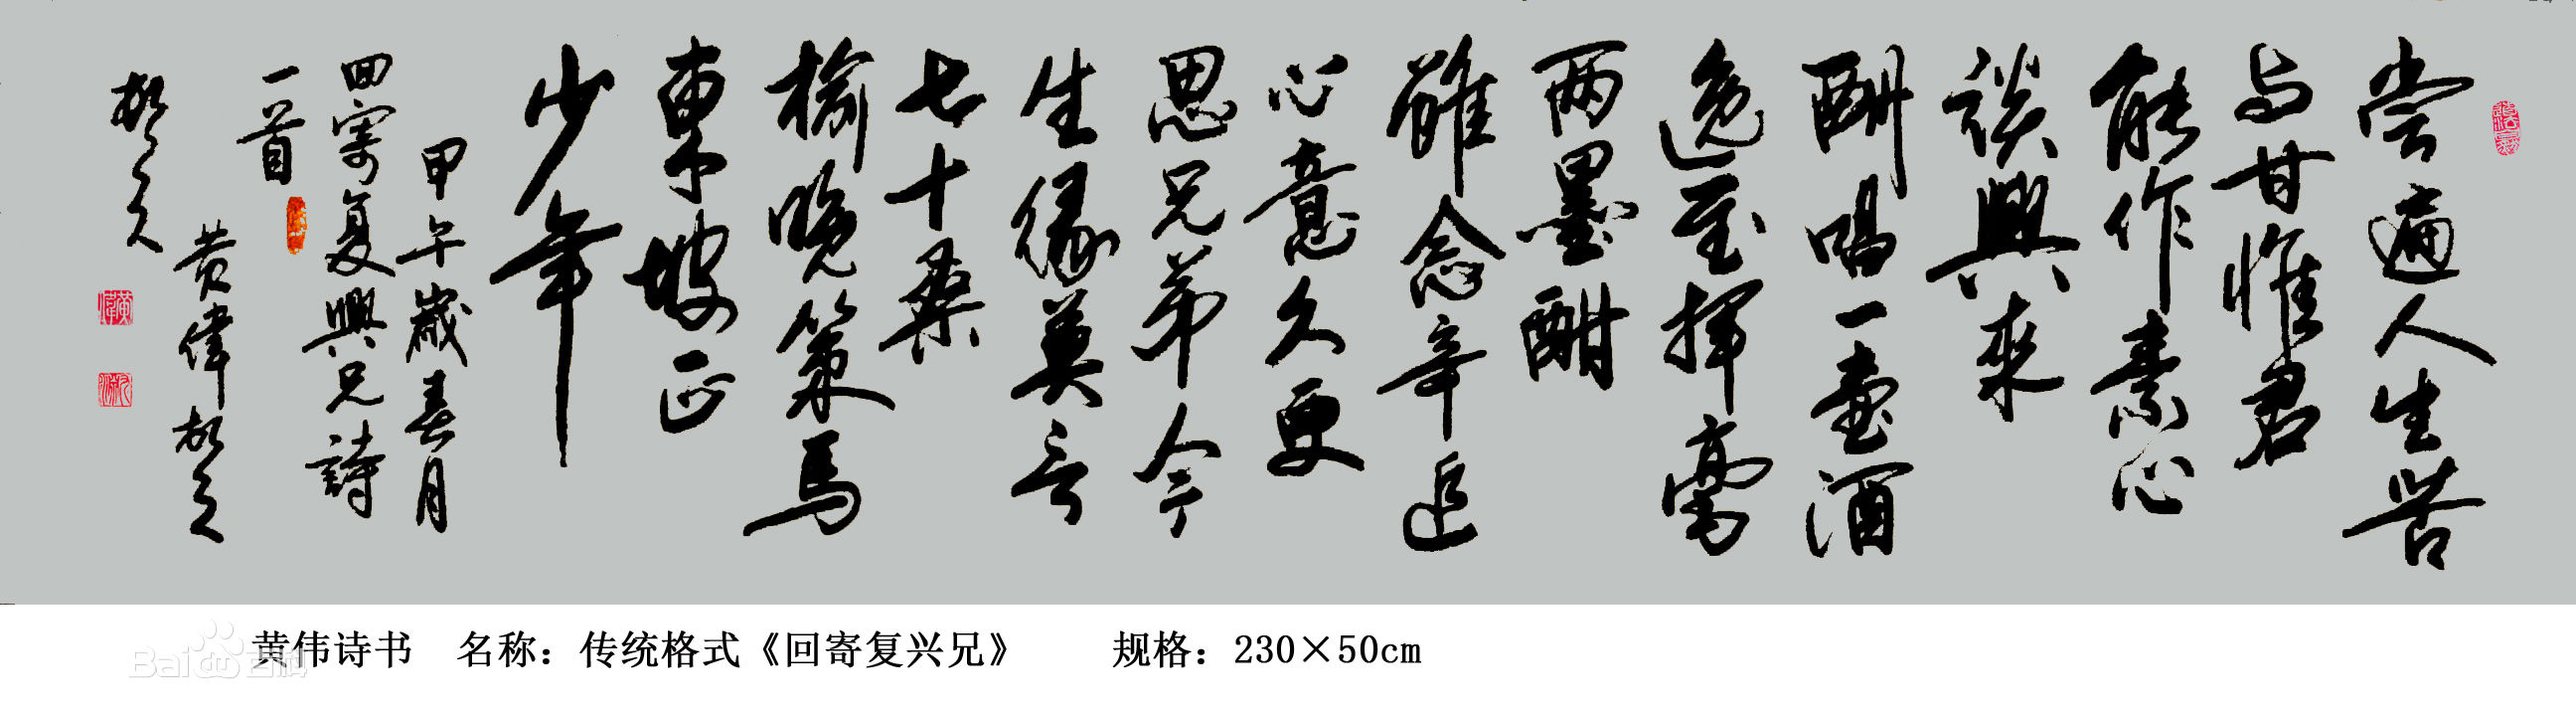 尝遍人生苦
与甘惟君
能作素心
谈興来
酬唱一壶酒
逸至挥毫
两墨酣
雖念辛追
心意久更
思兄弟今
生缘莫言
七十桑
榆晚策马
東坡正
少年
甲午歲春月
回寄复興兄詩
一首
黄偉
黄伟诗书 名称：传统格式《回寄复兴兄》 规格：230×50cm
Bai百科